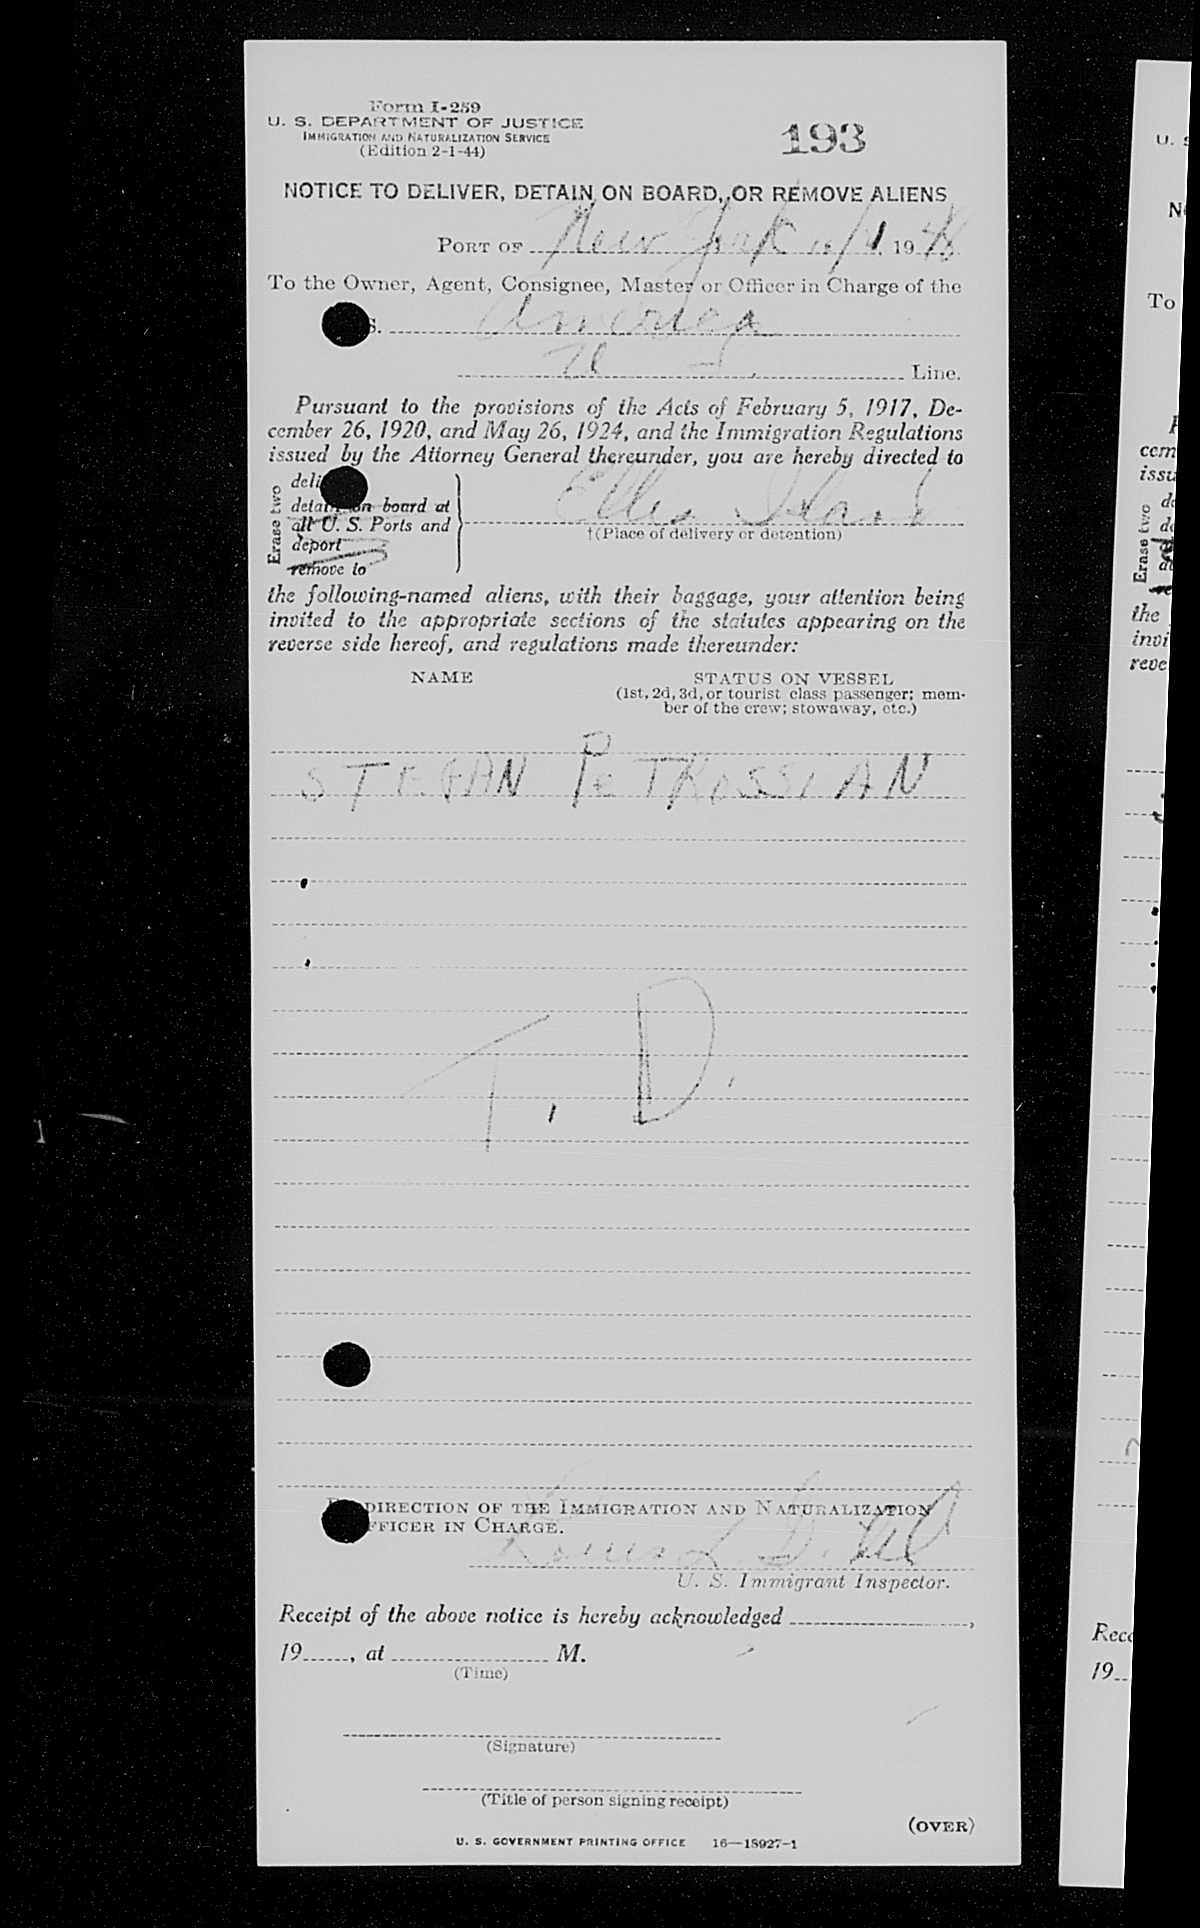 Form I-259
U. S. DEPARTMENT OF JUSTICE
IMMIGRATION AND NATURALIZATION SERVICE
(Edition 2-1-44)
193
NOTICE TO DELIVER, DETAIN ON BOARD, OR REMOVE ALIENS
PORT OF New York 1948
To the Owner, Agent, Consignee, Master or Officer in Charge of the
S. America
U S. Line.
Pursuant to the provisions of the Acts of February 5, 1917, De-
cember 26, 1920, and May 26, 1924, and the Immigration Regulations
issued by the Attorney General thereunder, you are hereby directed to
Erase two
deli
detain on board at
all U. S. Ports and
deport
remove to
Ellis Island
†(Place of delivery or detention)
the following-named aliens, with their baggage, your attention being
invited to the appropriate sections of the statutes appearing on the
reverse side hereof, and regulations made thereunder:
NAME
STATUS ON VESSEL
(1st, 2d, 3d, or tourist class passenger; mem-
ber of the crew; stowaway, etc.)
STEFAN PETROSSIAN
T. D.
DIRECTION OF THE IMMIGRATION AND NATURALIZATION
FFICER IN CHARGE.
Louis
U. S. Immigrant Inspector.
Receipt of the above notice is hereby acknowledged ,
19 , at M.
(Time)
(Signature)
(Title of person signing receipt)
(OVER)
U. S. GOVERNMENT PRINTING OFFICE 16—18927-1
U. S
N
To
cem
issu
Erase two
de
the
invi
reve
Rece
19